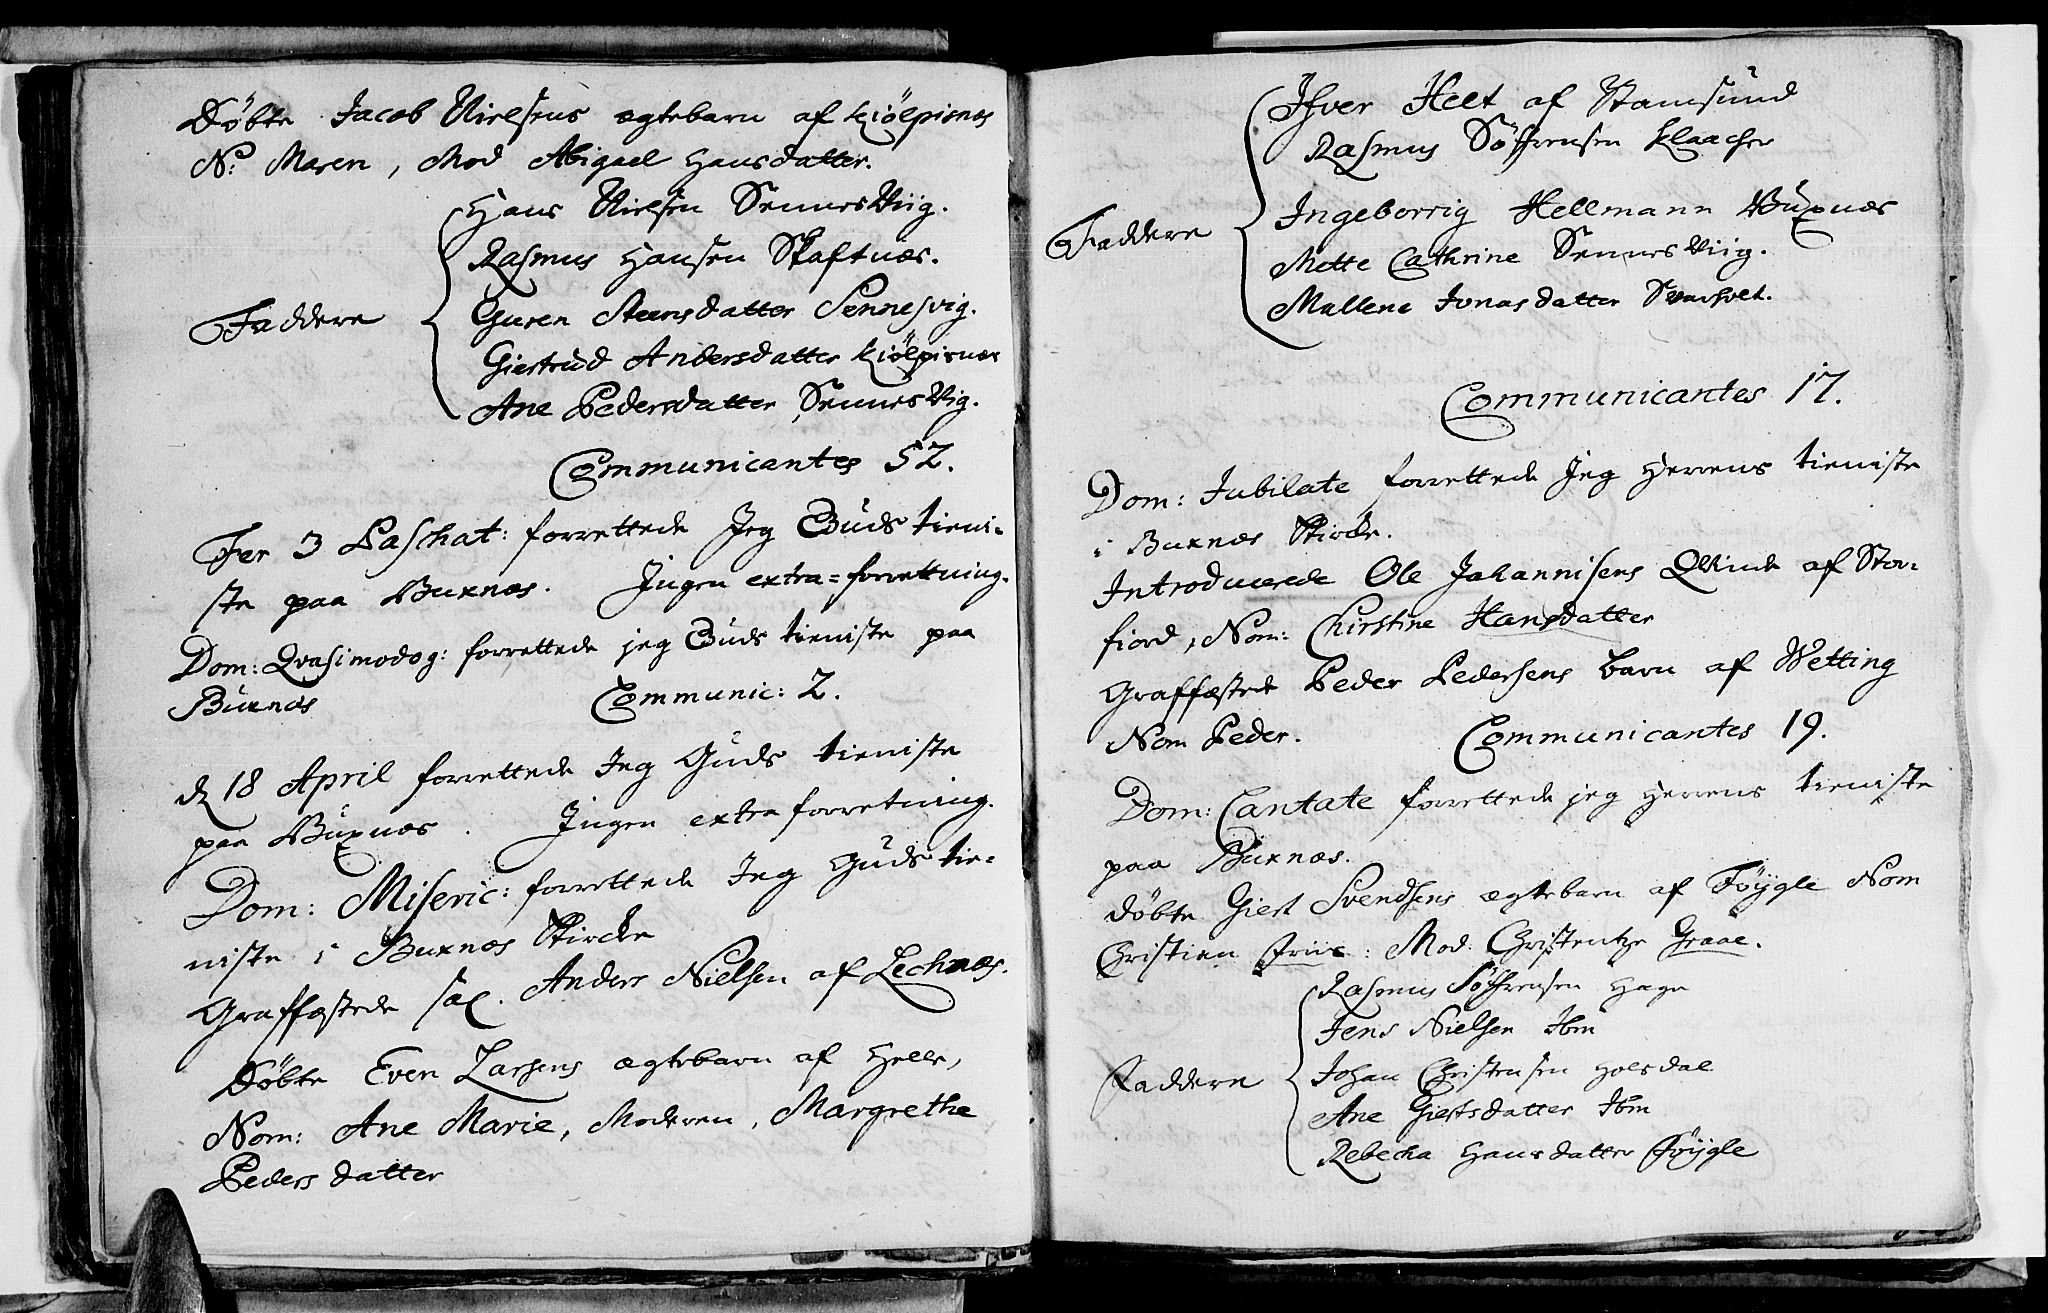 Døbte Jacob Nielsens ægtebarn af Kiølpisnæs
N: Maren, Mod Abigael Hansdatter.
Hans Nielsen Sennesviig.
Rasmus Hansen Skaftnæs.
Guren Steensdatter Sennesvig.
Faddere
Giertrud Andersdatter Kiølpisnæs
Ane Pedersdatter Sennesvig.
Communicantes 52.
Fer 3 Paschat: forrettede Jeg Guds tieni-
ste paa Buxnæs. Ingen extra=forrettning.
Dom: Qvasimodog: forrettede jeg Guds tieniste paa
Buxnæs Communic: 2.
d 18 April forrettede Jeg Guds tieniste
paa Buxnæs. Ingen extra forretning.
Dom: Miseric: forrettede Jeg Guds tie=
niste i Buxnæs Kircke
Graffæstede sal. Anders Nielsen af Lechnæs.
Døbte Even Larsens ægtebarn af Helle,
Nom: Ane Marie, Moderen, Margrethe
Peders datter
Ifver Helt af Stamsund
Rasmus Søffrensen Klaacher
Ingeborrig Hellmann Buxnæs
Faddere
Mette Cathrine Sennesviig.
Mallene Jonasdatter Svarholt.
Communicantes 17.
Dom: Jubilate forrettede Jeg Herrens tieniste
i Buxnæs Kircke.
Introducerede Ole Johannisens Qvinde af Stor-
fiord, Nom: Chirstine Hansdatter
Graffæstede Peder Pedersens barn af Wetting
Nom Peder. Communicantes 19.
Dom: Cantate forrettede jeg Herrens tieniste
paa Buxnæs.
Døbte Giert Svendsens ægtebarn af Føygle Nom
Christien Friis: Mod: Christentze Graae.
Rasmus Søffrensen Hage
Jens Nielsen Ibm
Faddere
Johan Christensen Holsdal
Ane Giertsdatter Ibm
Rebecka Hansdatter Føygle